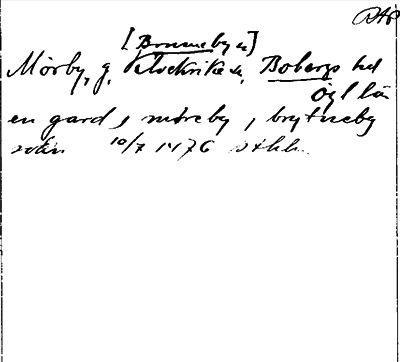 RAP
[Brunneby sn]
Mörby, g, Klockrike sn, Bobergs hd
Ögl län
en gard j møreby j brytneby
sokn 10/7 1476 Sthlm